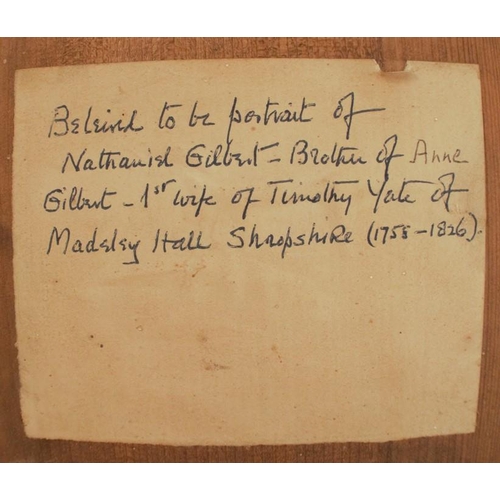 Beleivd to be portrait of
Nathaniel Gilbert - Brother of Anne
Gilbert - 1st wife of Timothy Yate of
Madeley Hall Shropshire (1758-1826).